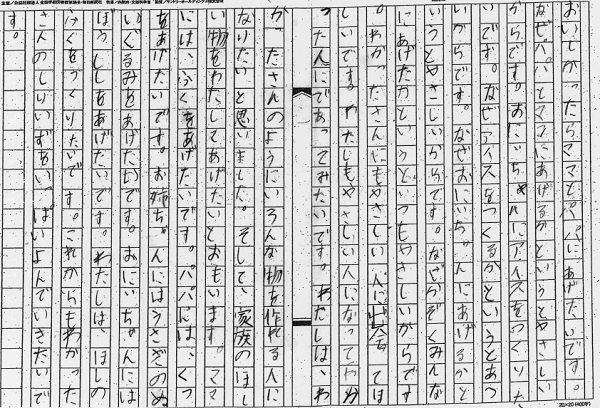 おいしかったらママとパパにあげたいです。
なぜパパとママにあげるかというとやさしい
からです。おにいちゃんにアイスをつくりた
いです。なぜアイスをつくるかというとあつ
いからです。なぜおにいちゃんにあげるかと
いうとやさしいからです。なぜかぞくみんな
にあげたかというといつもやさしいからです
。わかったさんにもやさしい人に
しいです。わたしもやさしい人になってやわ
ったんにであってみたいです。わたしは、わ
かったさんのようにいろんな物を作れる人に
なりたいと思いました。そして、家族のほし
い物をわたしてあげたいとおもいます。ママ
には、ふくをあげたいです。パパには、くつ
をあげたいです。お姉ちゃんにはうさぎのぬ
いぐるみをあげたいです。おにいちゃんには
ぼうしをあげたいです。わたしは、ほしの
ふくをつくりたいです。これからもわかった
さんのしりいずをいっぱいよんでいきたいで
す。
20×20(400字)